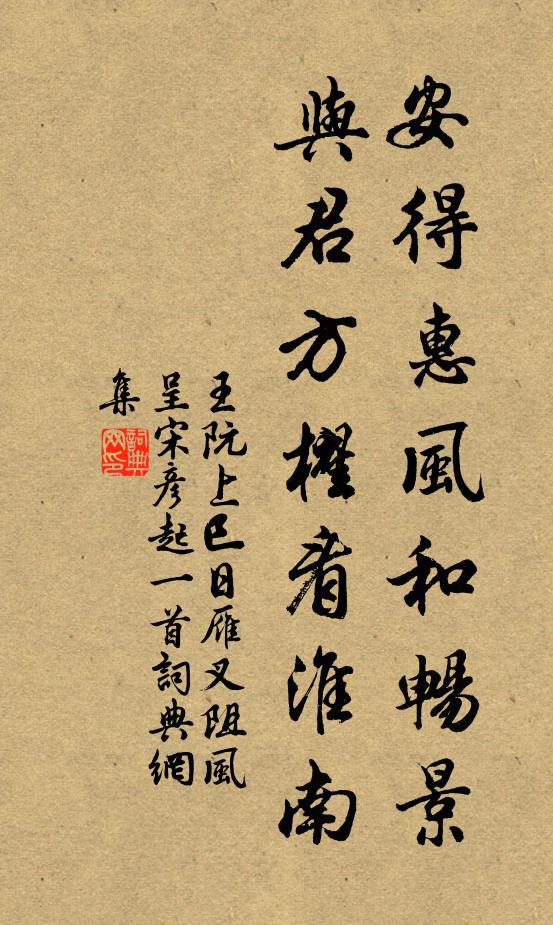 安得惠風和暢景
與君方櫂看淮南
王阮上巳日雁叉阻風
呈宋彥起一首詞典網
集
詞典網印